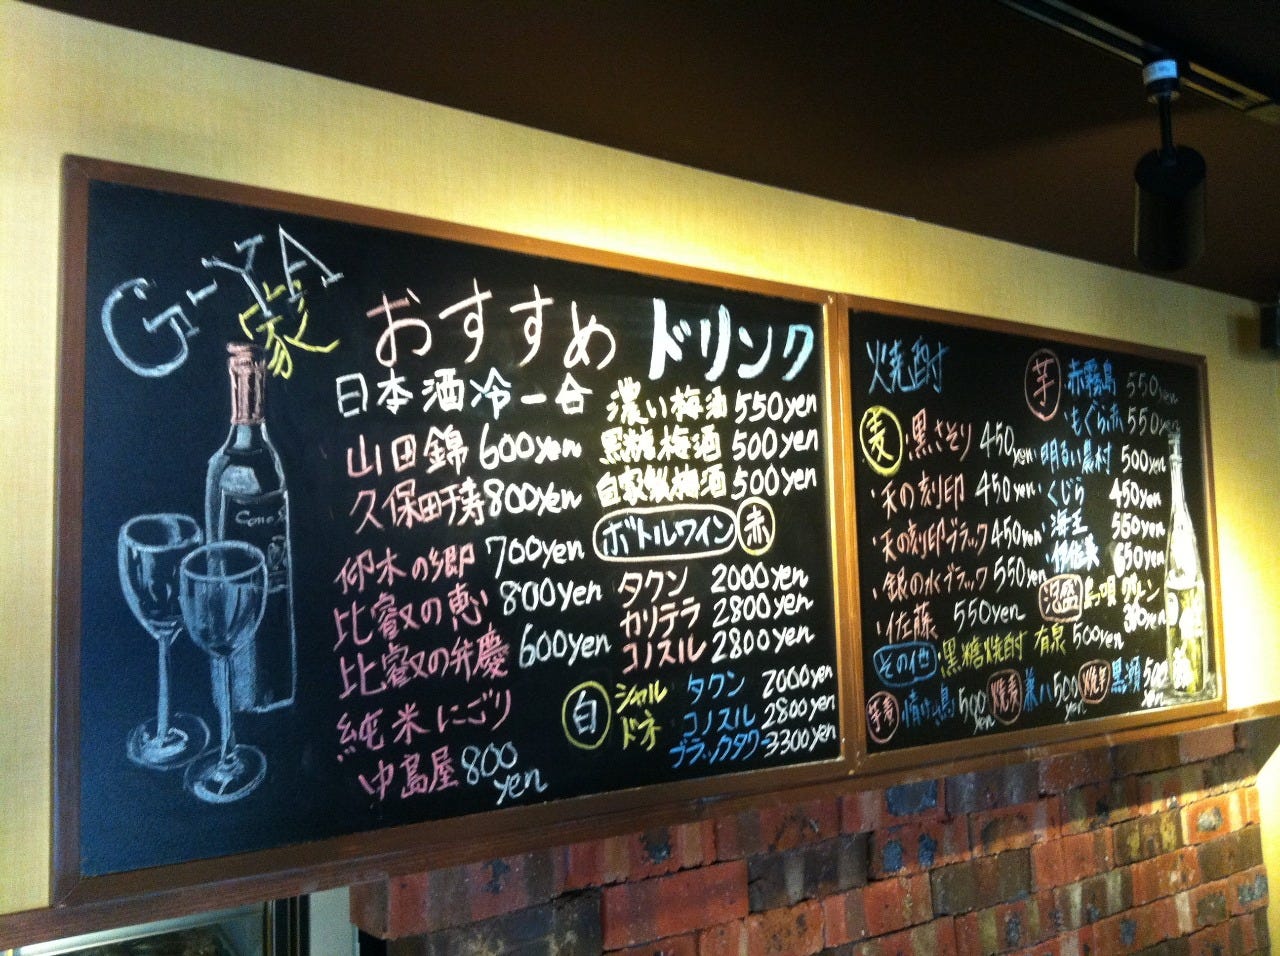 G-YA
家
おすすめ ドリンク
日本酒 冷 一合
山田錦 600yen
久保田千寿 800yen
仰木の郷 700yen
比叡の恵い 800yen
比叡の弁慶 600yen
純米にごり
中島屋 800yen
濃い梅酒 550yen
黒糖梅酒 500yen
自家製梅酒 500yen
ボトルワイン 赤
タクン 2000yen
カリテラ 2800yen
コノスル 2800yen
白 シャルドネ
タクン 2000yen
コノスル 2800yen
ブラックタワー 3300yen
焼酎
麦 ・黒さそり 450yen
・禾の刻印 450yen
・禾の刻印ブラック 450yen
・銀の水ブラック 550yen
・佐藤 550yen
芋 ・赤霧島 550yen
・もぐら赤 550yen
・明るい農村 500yen
・くじら 450yen
・海王 550yen
・伊佐美 650yen
泡盛 島唄グリーン
その他 ・黒糖焼酎 有泉 500yen
情け嶋 500yen 兼八 500yen 黒瀬 500